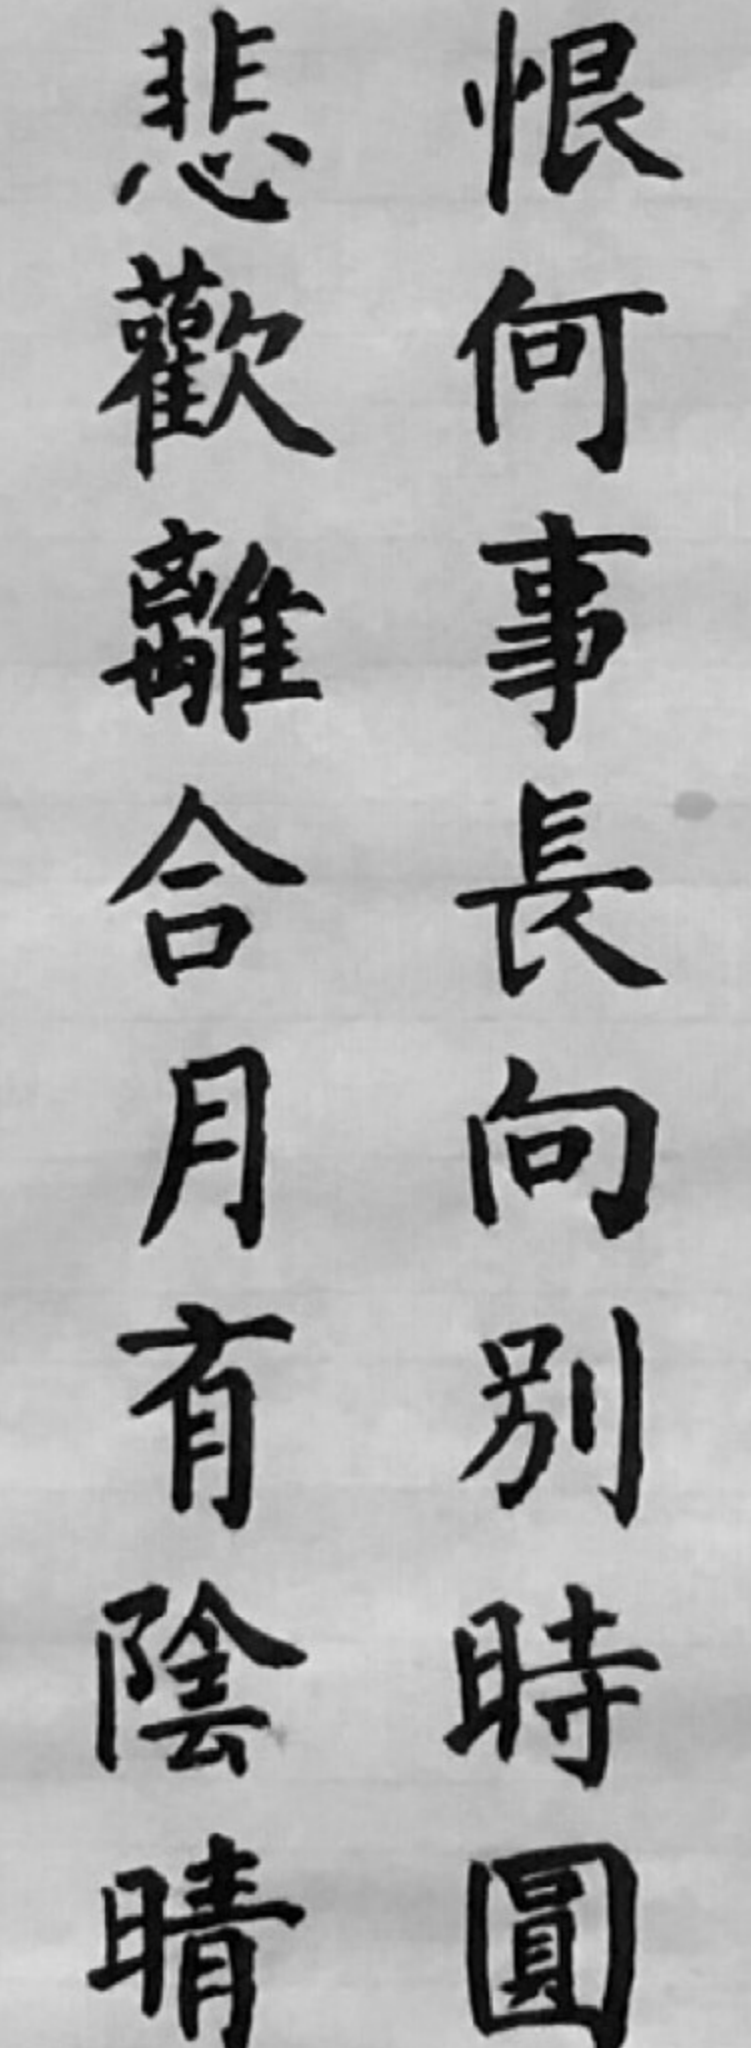 恨何事長向別時圓
悲歡離合月有陰晴